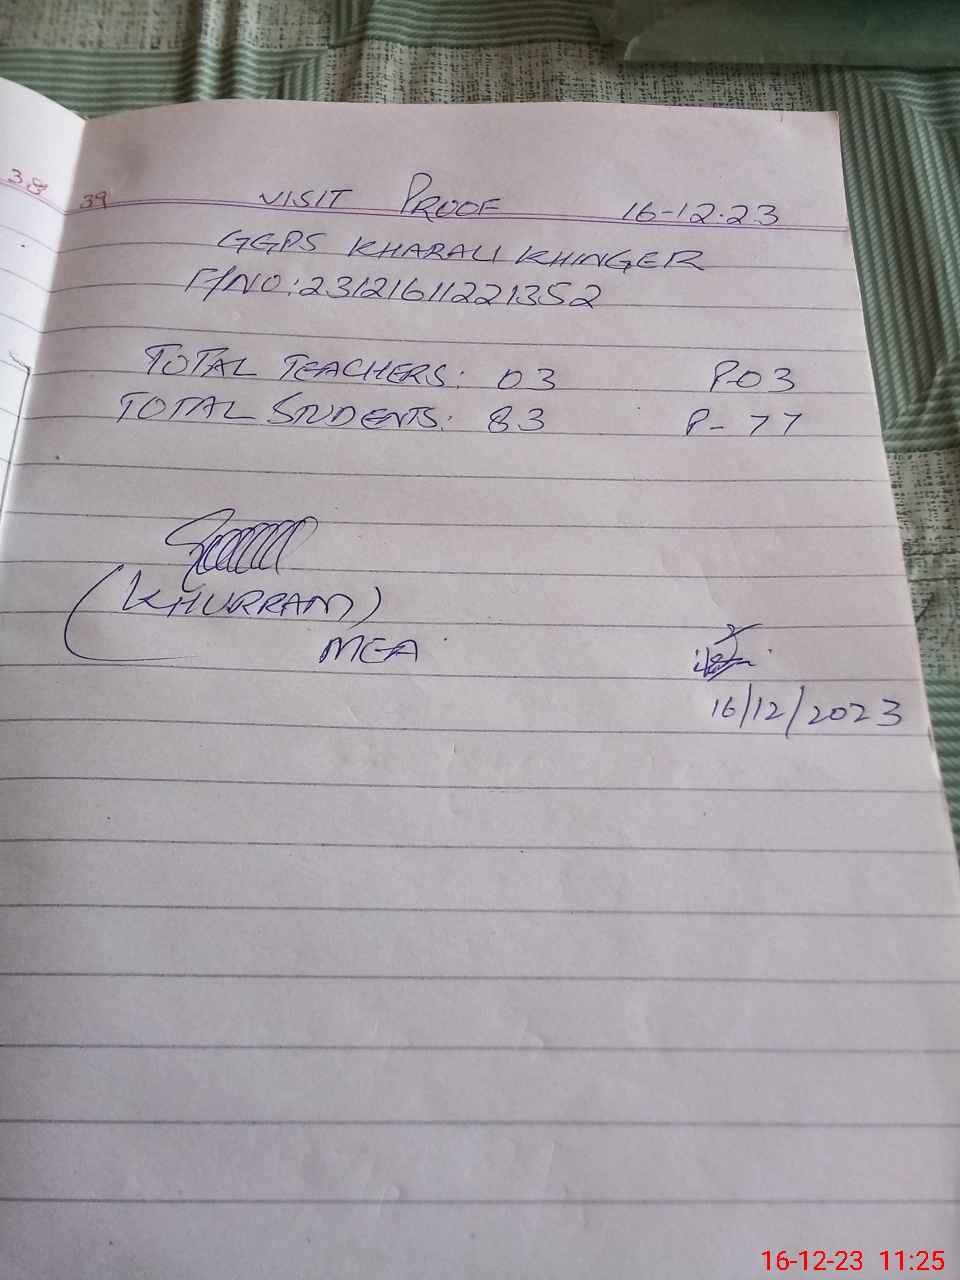 38
39
VISIT PROOF 16-12-23
GGPS KHARALI KHINGER
F/NO:23121611221352
TOTAL TEACHERS: 03 P-03
TOTAL STUDENTS: 83 P-77
(KHURRAM)
MEA
16/12/2023
16-12-23 11:25